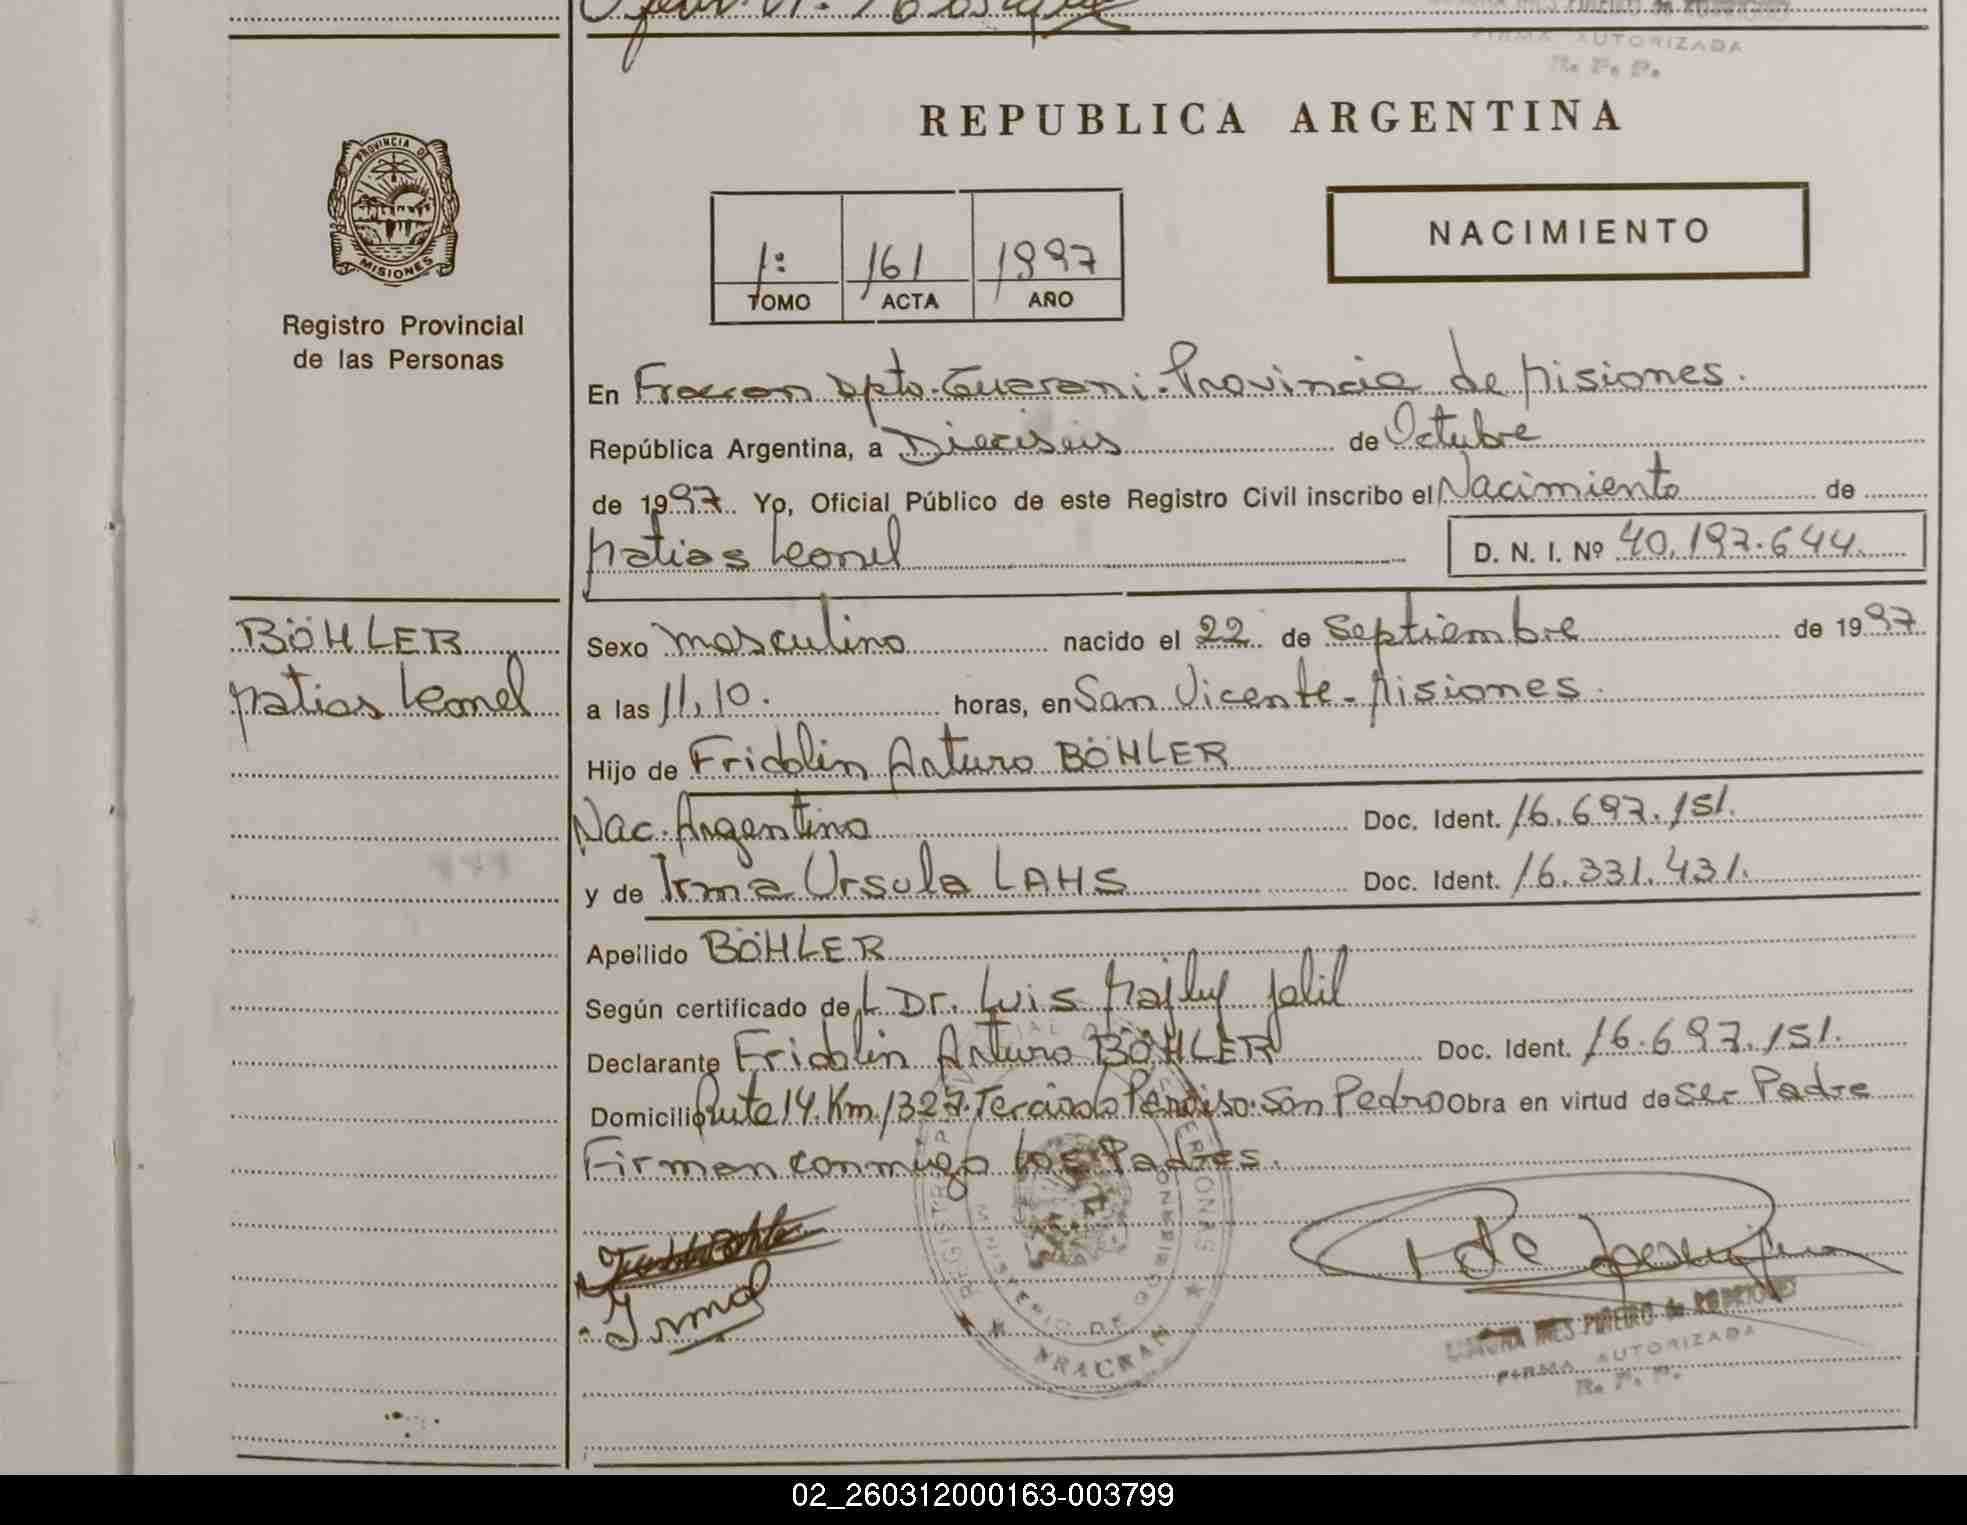 FIRMA AUTORIZADA
R. P. P.
REPUBLICA ARGENTINA
PROVINCIA DE
MISIONES
Registro Provincial
de las Personas
NACIMIENTO
1: 161 1997
TOMO ACTA AÑO
En Fracran Dpto. Guarani. Provincia de Misiones.
República Argentina, a Dieciseis de Octubre
de 1997. Yo, Oficial Público de este Registro Civil inscribo el Nacimiento de
Matias Leonel D. N. I. Nº 40.197.644.
BÖHLER
Matias Leonel
Sexo masculino nacido el 22 de Septiembre de 1997
a las 11,10. horas, en San Vicente-Misiones.
Hijo de Fridolin Arturo BÖHLER
Nac. Argentino Doc. Ident. 16.697.151.
y de Irma Ursula LAHS Doc. Ident. 16.331.431.
Apellido BÖHLER
Según certificado de L Dr. Luis Majluf Jalil
Declarante Fridolin Arturo BÖHLER Doc. Ident. 16.697.151.
Domicilio Ruta 14. Km. 1327. Terciado Paraiso. San Pedro Obra en virtud de Ser Padre
Firman conmigo Los Padres.
Irma
REGISTRO PROVINCIAL DE LAS PERSONAS
MINISTERIO DE GOBIERNO
FRACRAN
INES PIÑEIRO de RODRIGUEZ
FIRMA AUTORIZADA
R. P. P.
02_260312000163-003799